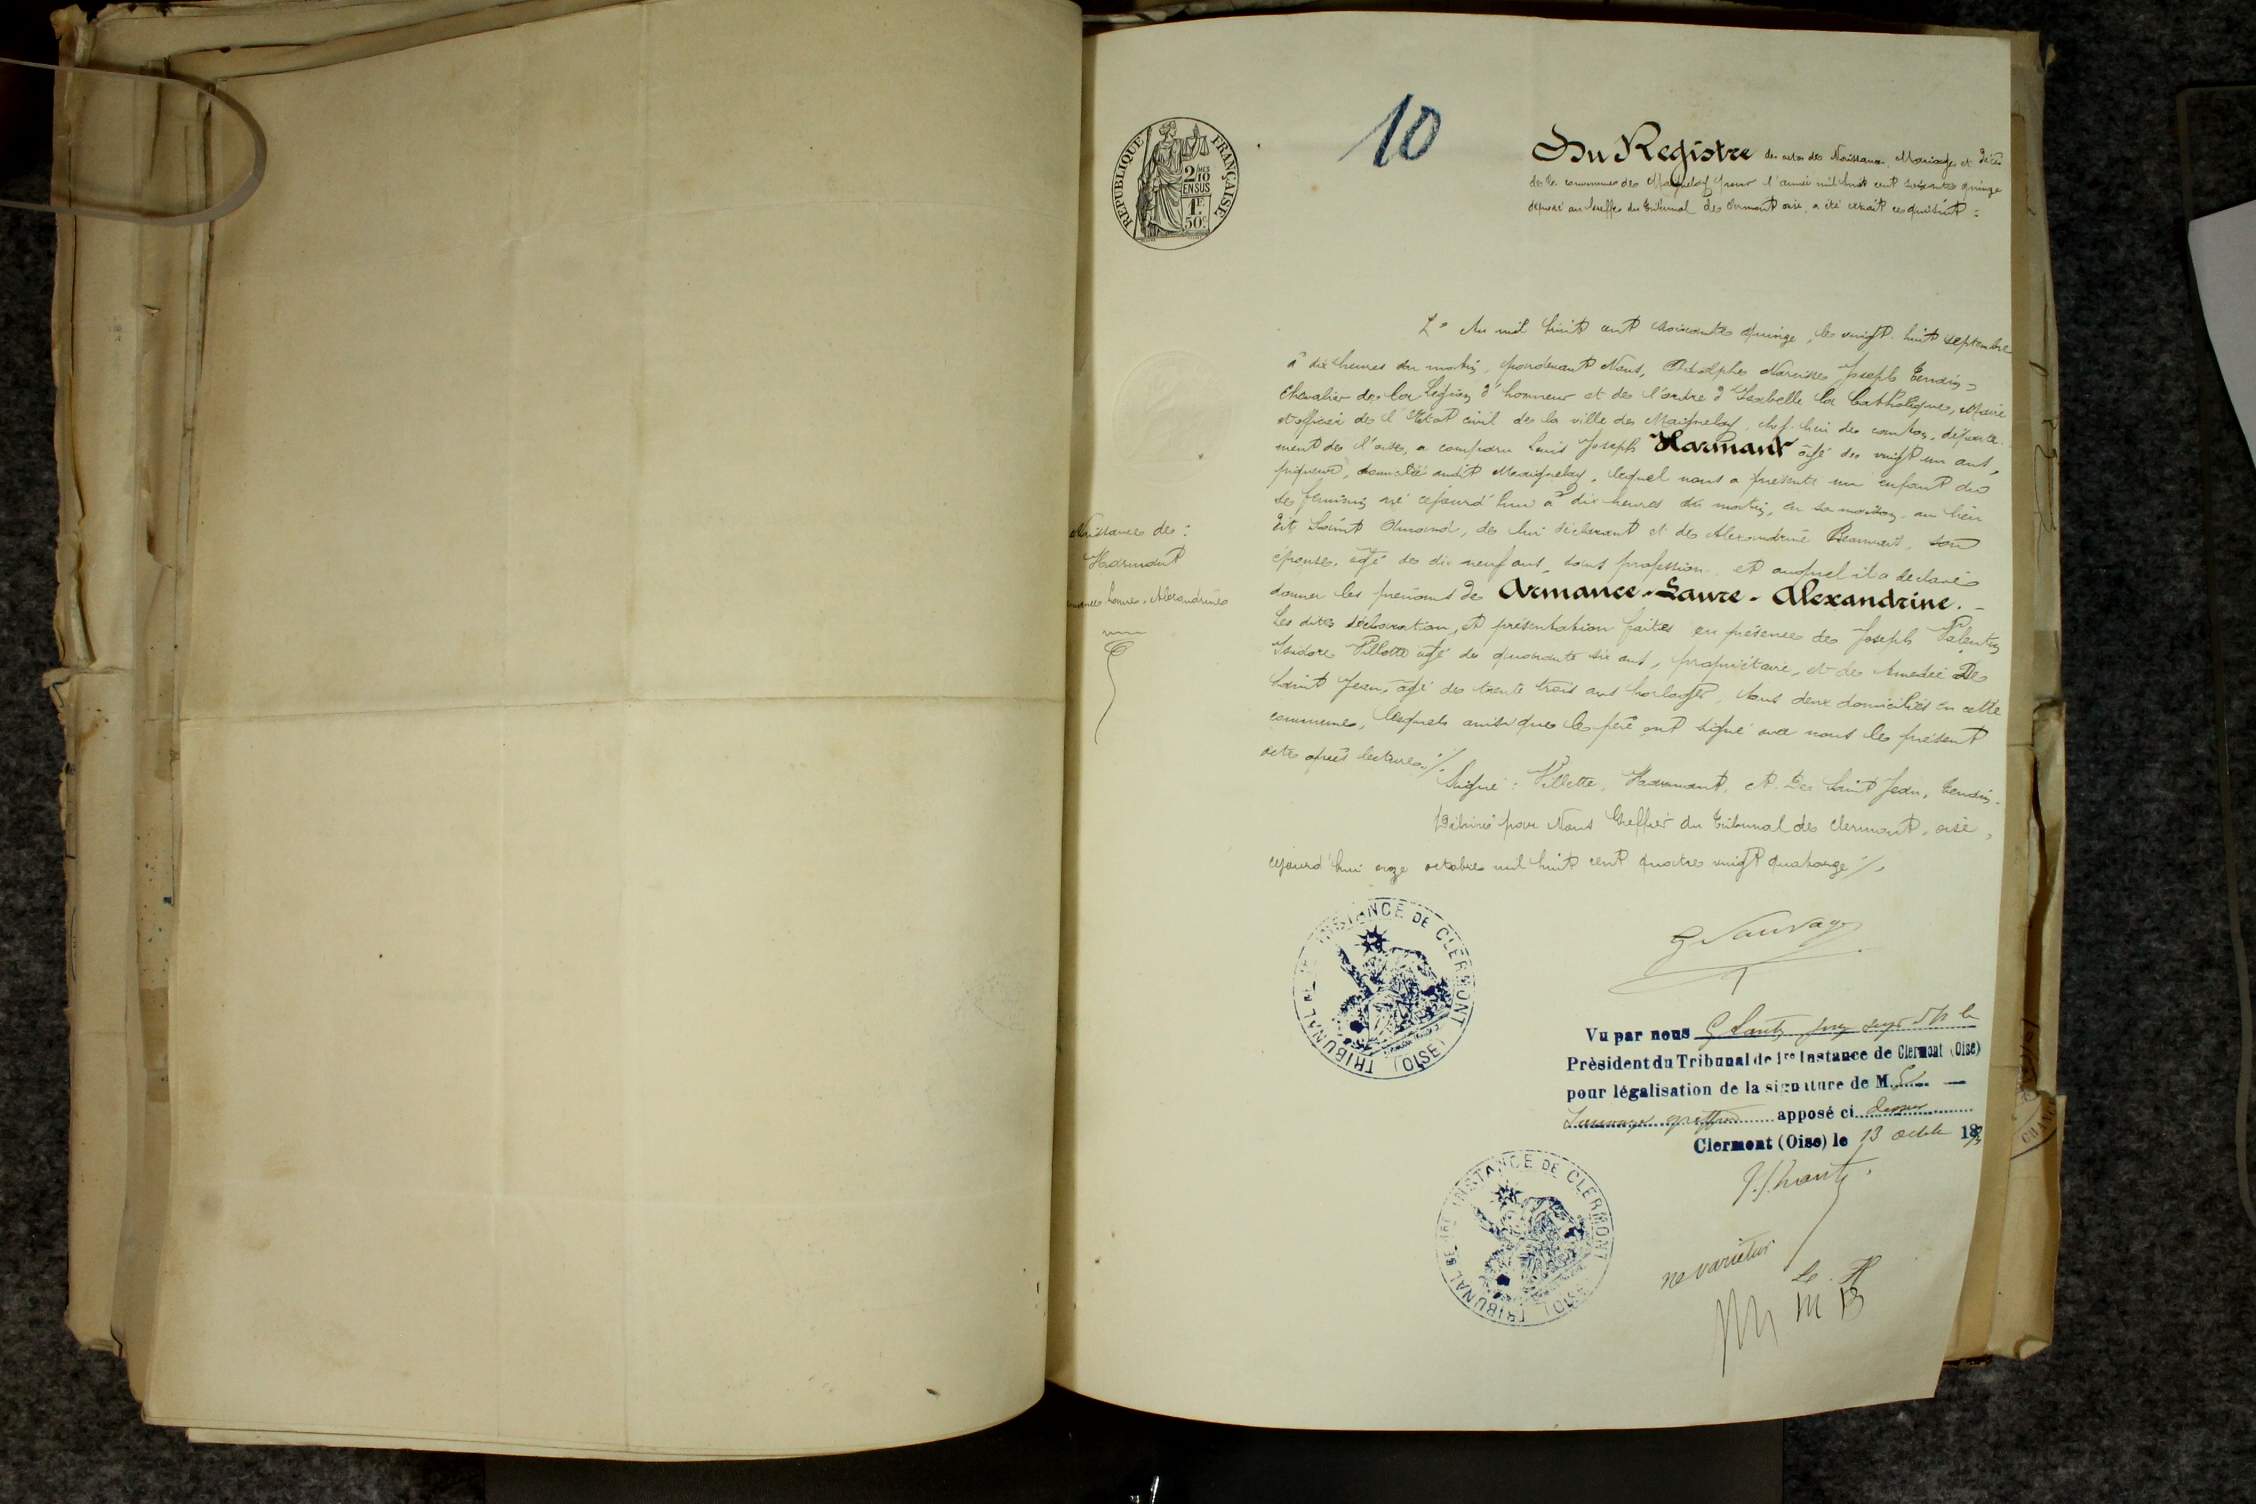 10
RÉPUBLIQUE FRANÇAISE
2/10 MES
EN SUS
1F
50c
Du Registre des actes des Naissances Mariages et Décès
de la commune de Maignelay pour l'année mil huit cent soixante quinze
déposé au Greffe du Tribunal de Clermont oise, a été extrait ce qui suit :
L'An mil huit cent soixante quinze, le vingt huit septembre
à dix heures du matin, pardevant Nous, Adolphe Narcisse Joseph
Chevalier de la Légion d'honneur et de l'ordre d'Isabelle la Catholique, Maire
et officier de l'Etat civil de la ville de Maignelay, chef-lieu de canton, départe
ment de l'oise, a comparu Louis Joseph Harmant âgé de vingt un ans,
piqueur, domicilié audit Maignelay, lequel nous a présenté un enfant du
sexe féminin né cejourd'hui à dix heures du matin, en sa maison au lieu
dit Saint, de lui déclarant et de Alexandrine, son
épouse, âgé de dix neuf ans, sans profession, et auquel il a déclaré
donner les prénoms de Armance-Laure-Alexandrine.
Les dites déclaration et présentation faites en présence de Joseph Valentin
Isidore Villette âgé de quarante six ans, propriétaire, et de Amédée De
Saint Jean, âgé de trente trois ans horloger, tous deux domiciliés en cette
commune, lesquels ainsi que le père ont signé avec nous le présent
acte après lecture ./.
Signé : Villette, Harmant, A. De Saint Jean,
Délivré par Nous Greffier du Tribunal de Clermont, oise,
cejourd'hui onze octobre mil huit cent quatre vingt quatorze ./.
Naissance de :
Harmant
Armance Laure, Alexandrine
G Sauvage
TRIBUNAL DE 1RE INSTANCE DE CLERMONT (OISE)
Vu par nous
Président du Tribunal de 1re Instance de Clermont (Oise)
pour légalisation de la signature de M.
Sauvage greffier apposé ci dessus
Clermont (Oise) le 13 octobre 18
TRIBUNAL DE 1RE INSTANCE DE CLERMONT (OISE)
ne varietur
L. H
M B